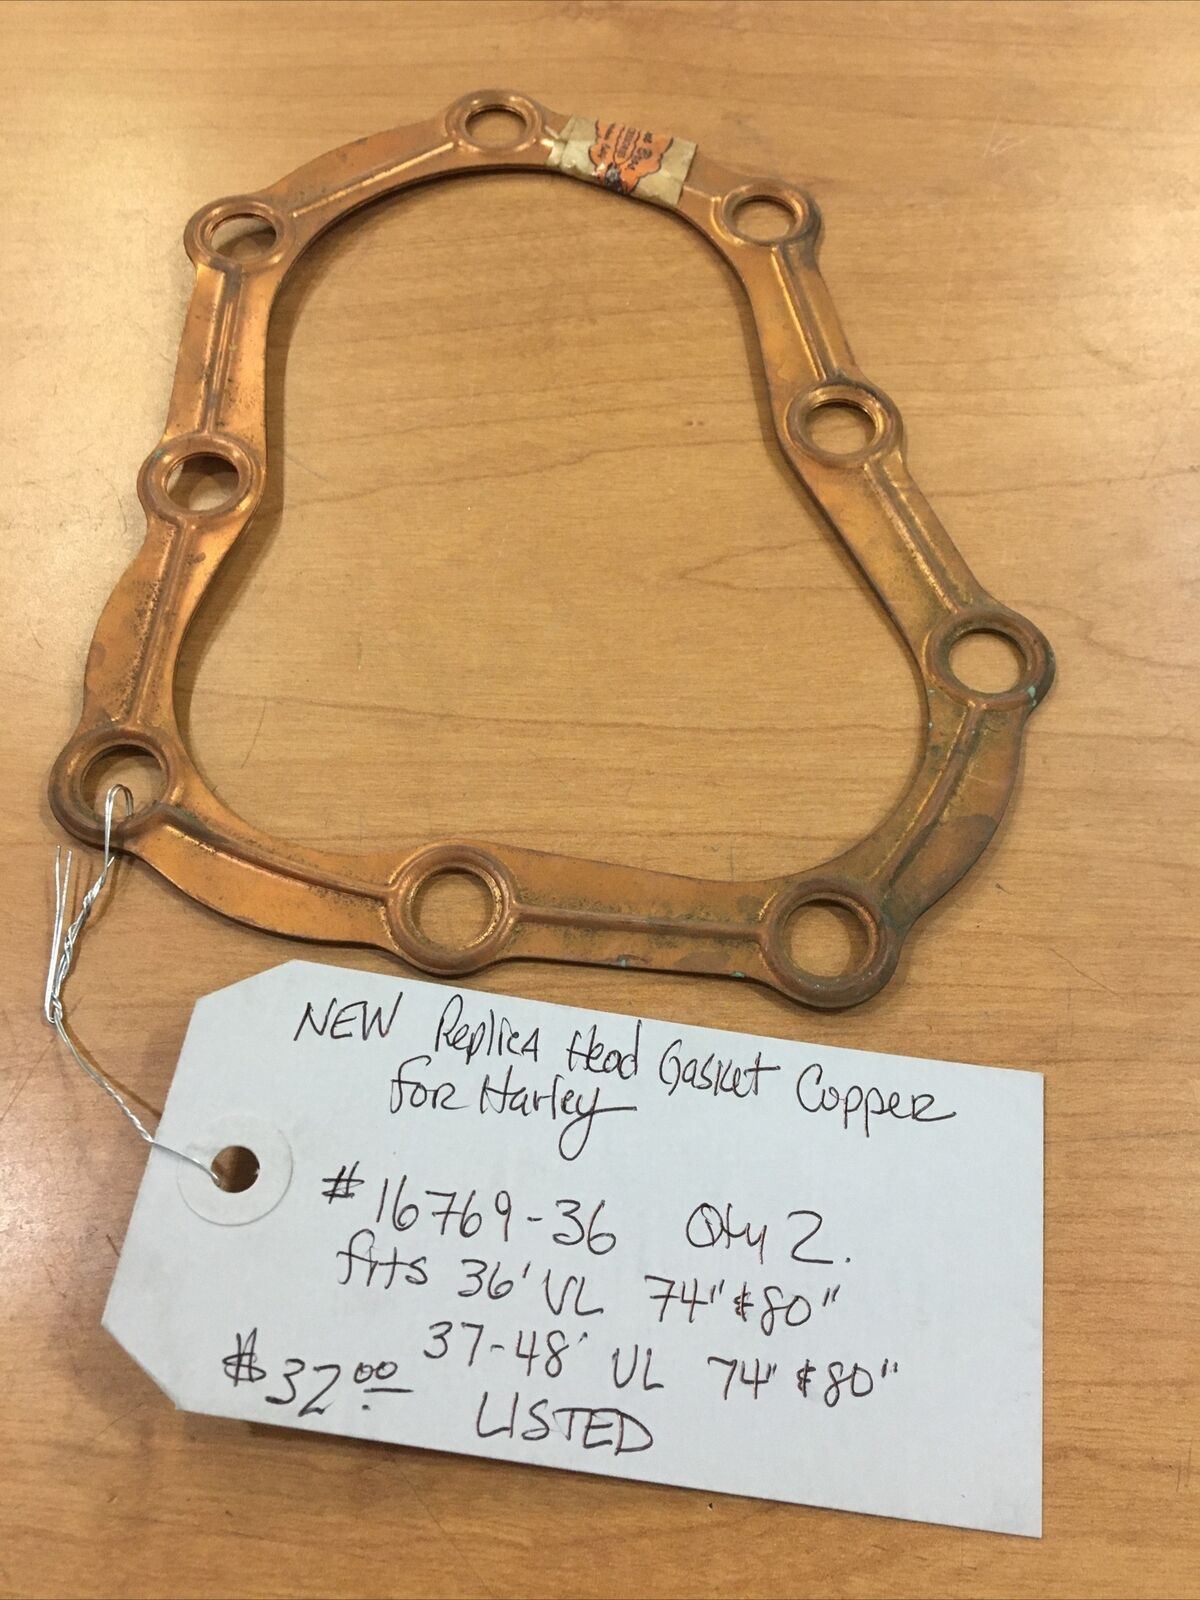 NEW Replica Head Gasket Copper
for Harley
#16769-36 Qty 2.
fits 36' VL 74" & 80"
37-48' UL 74" & 80"
$32.00
LISTED